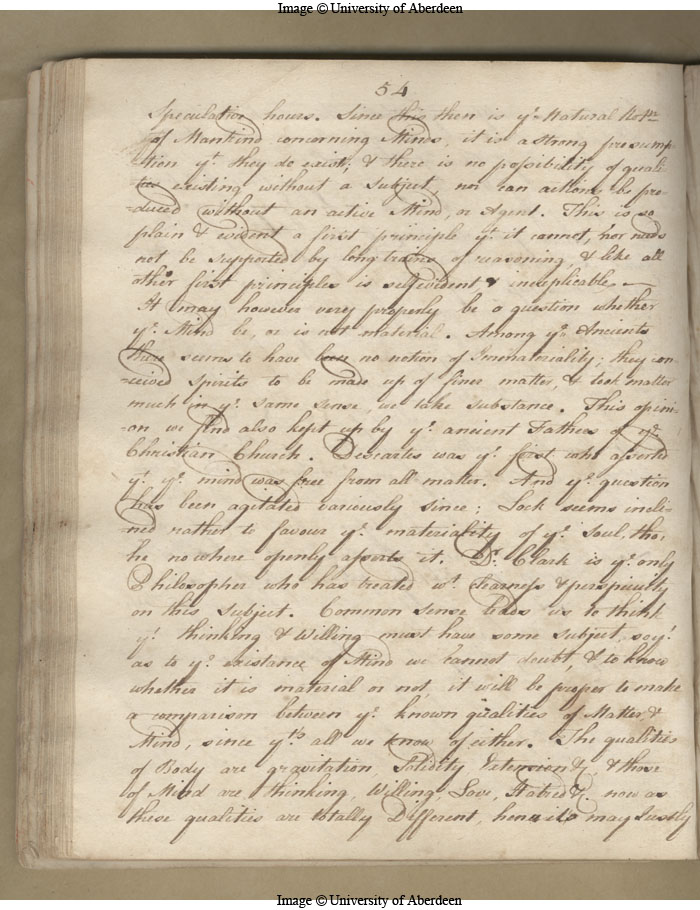 Image © University of Aberdeen
54
Speculative hours. Since this then is yᵉ Natural Notⁿ
of Mankind concerning Minds, it is a strong presump
-tion yᵗ they do exist, & there is no possibility of quali
-ties existing without a subject, nor can actions be pro
-duced without an active Mind, or Agent. This is so
plain & evident a first principle yᵗ it cannot, nor needs
not be supported by long trains of reasoning, & like all
other first principles is self evident & inexplicable —
It may however very properly be a question whether
yᵉ Mind be, or is not material. Among yᵉ Ancients
there seems to have been no notion of Immateriality; they con
=ceived spirits to be made up of finer matter, & took matter
much in yᵉ same sense, we take substance. This opini
-on we find also kept up by yᵉ ancient Fathers of yᵉ
Christian Church. Descartes was yᵉ first who asserted
yᵗ yᵉ mind was free from all matter. And yᵉ question
has been agitated variously since; Lock seems incli
-ned rather to favour yᵉ materiality of yᵉ Soul, tho,
he no where openly asserts it. Dʳ. Clark is yᵉ only
Philosopher who has treated wᵗ clearness & perspicuity
on this Subject. Common sense leads us to think
yᵗ thinking & Willing must have some subject, so yᵗ
as to yᵉ existance of Mind we cannot doubt, & to know
whether it is material or not, it will be proper to make
a comparison between yᵉ known qualities of Matter &
Mind, since yᵗˢ all we know of either. The qualities
of Body are gravitation, Solidity Extension &c. & those
of Mind are thinking, Willing, Love, Hatred &c. now as
these qualities are totally Different, hence we may Justly
Image © University of Aberdeen